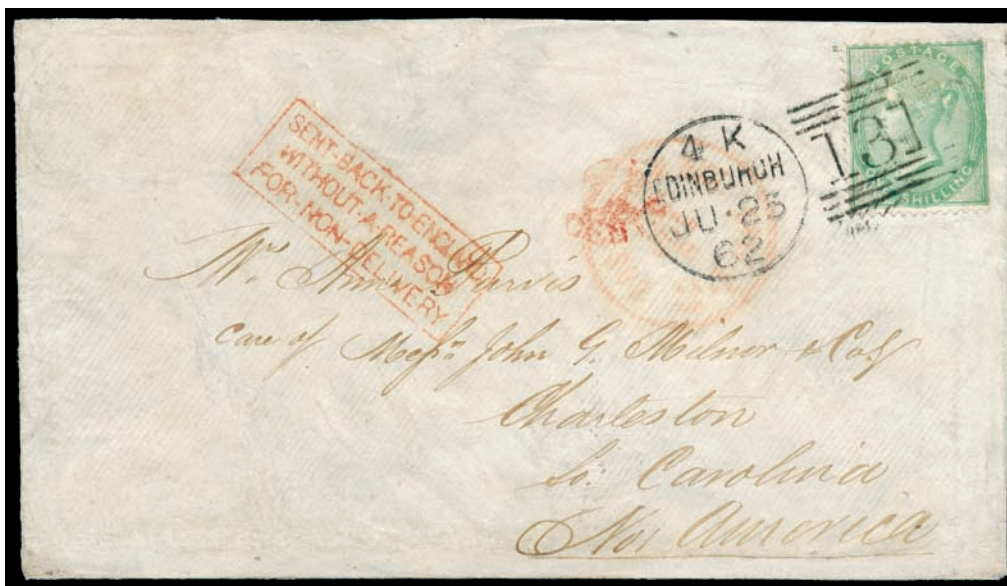 POSTAGE
ONE SHILLING
131
4 K
EDINBURGH
JU·25
62
SENT-BACK-TO-ENGLAND
WITHOUT-A-REASON
FOR-NON-DELIVERY
Mrs Ann Purvis
Care of Messrs John G. Milnor & Coy
Charleston
So. Carolina
Nor America